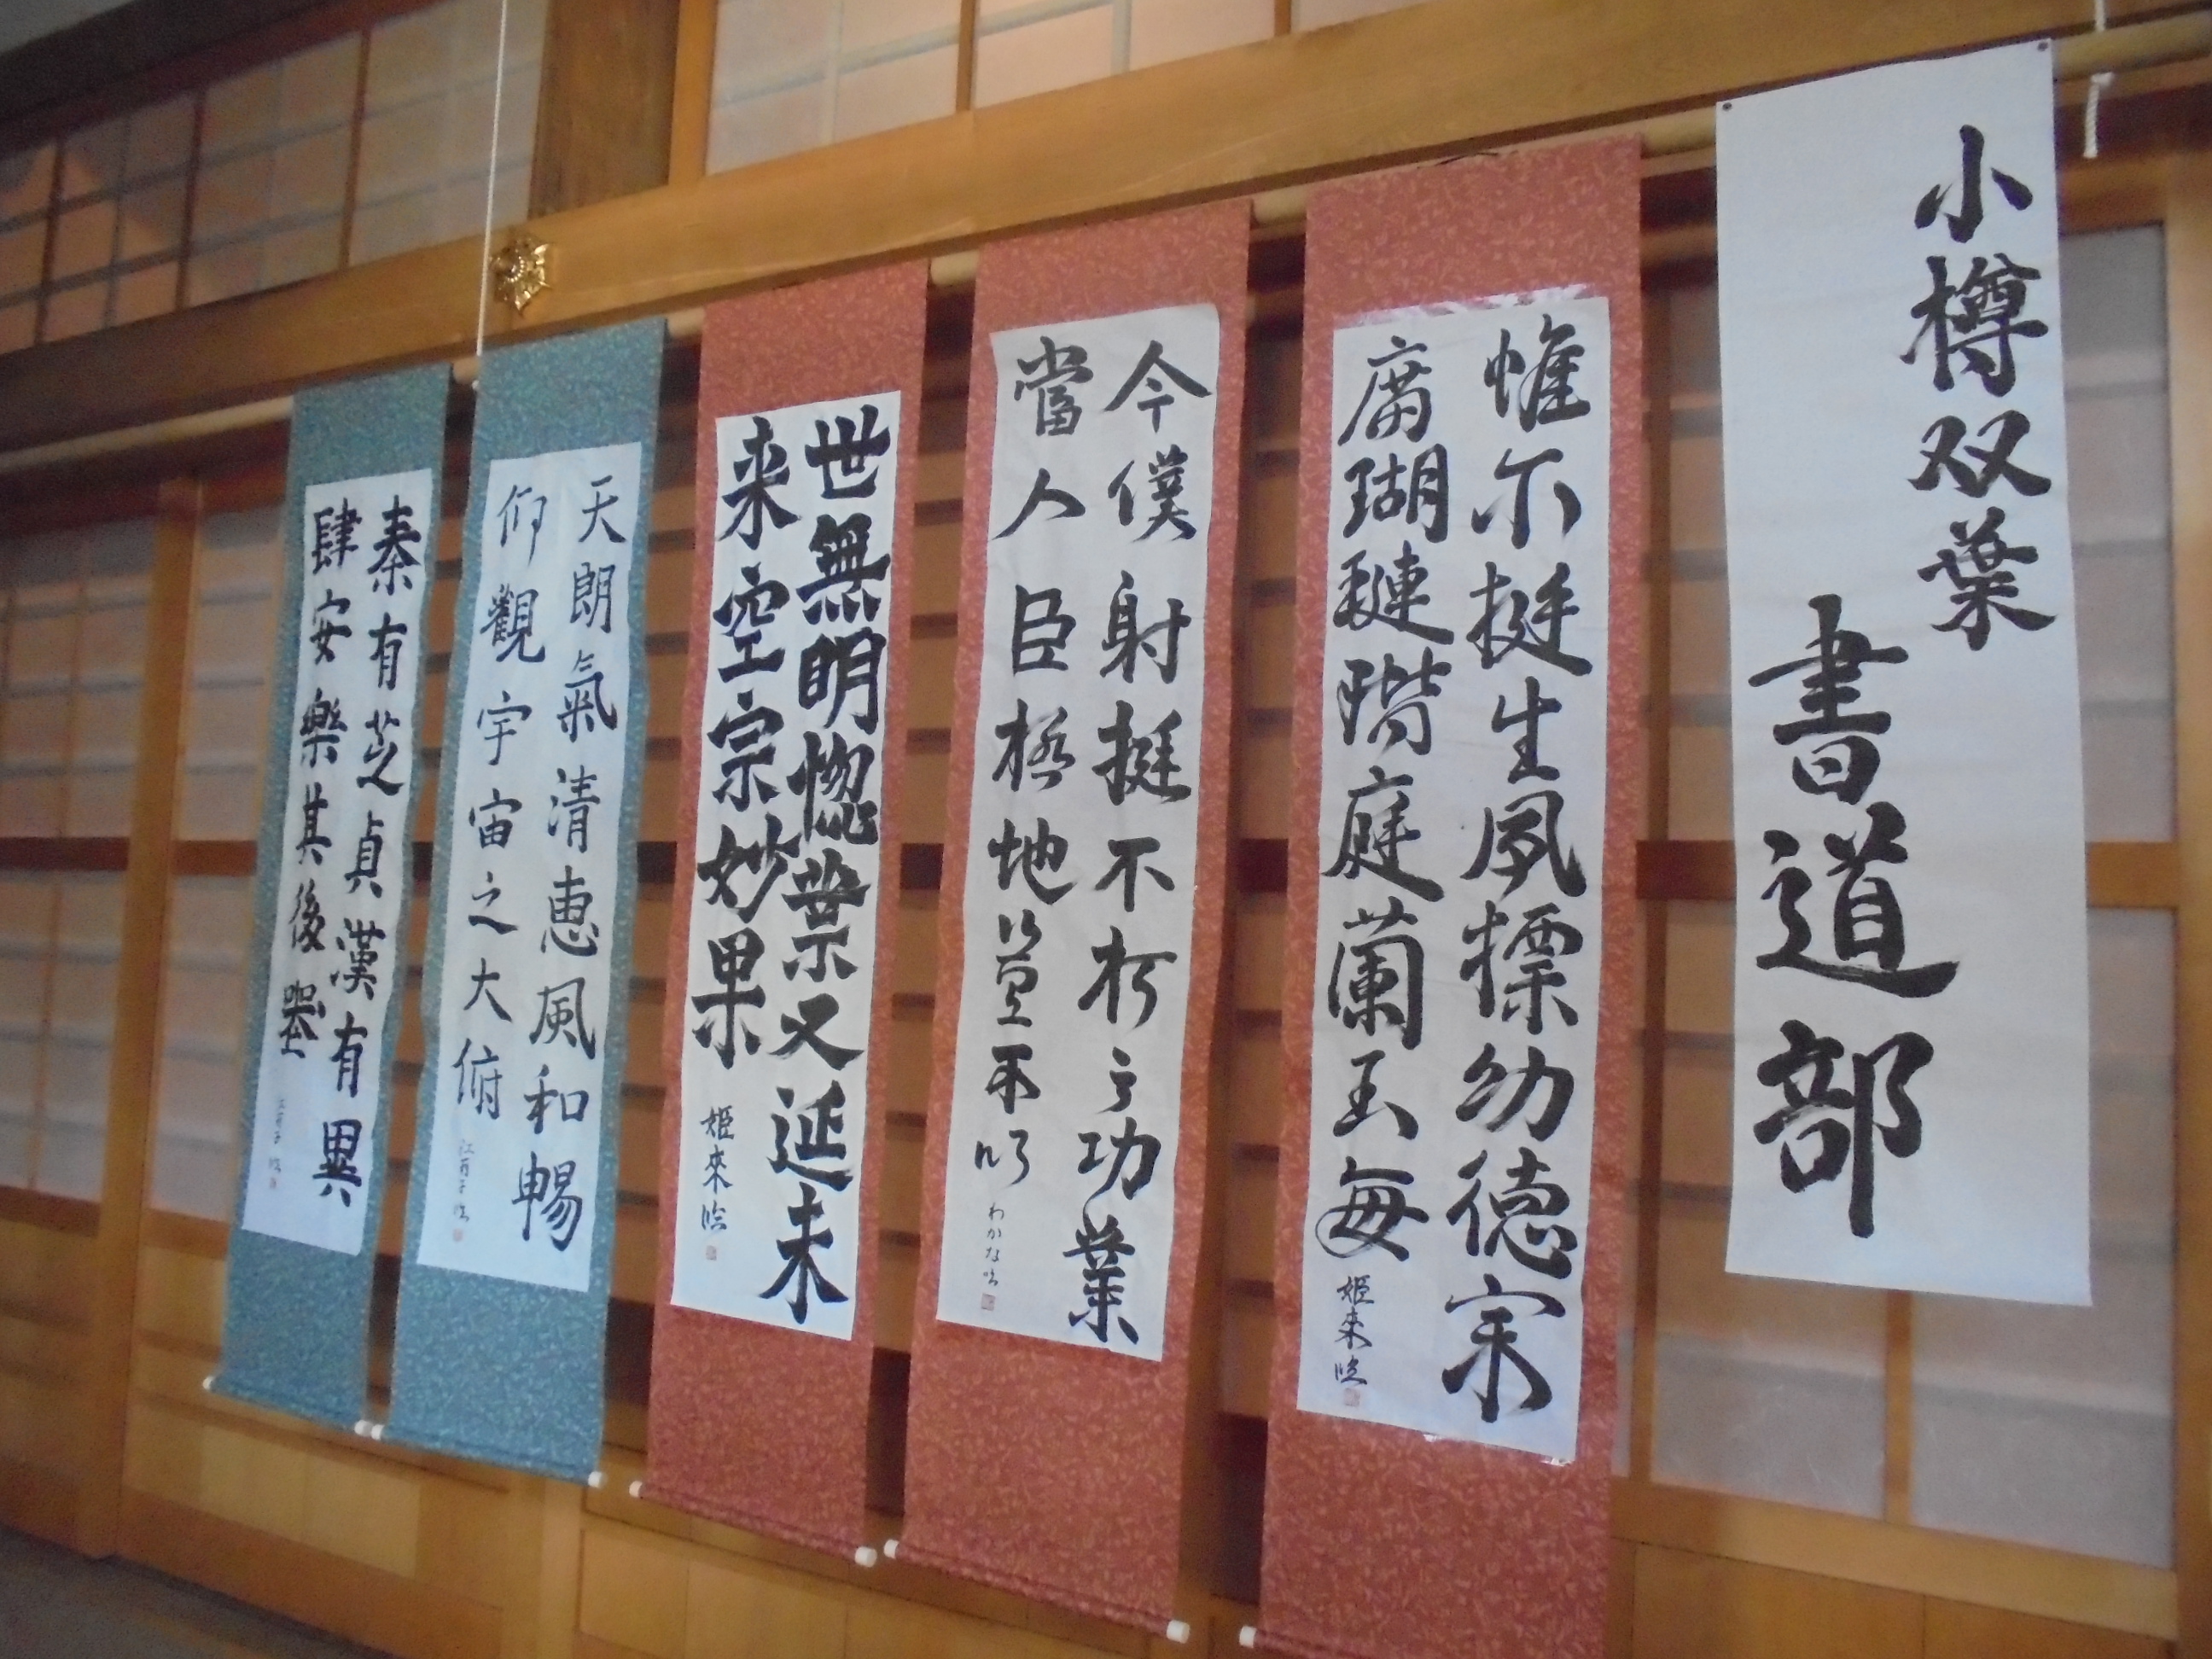 小樽双葉
書道部
惟尓挺生夙標幼德宗
庿瑚璉階庭蘭玉毎
姫来臨
今僕射挺不朽之功業
當人臣極地豈不以
わかな臨
世無明惚業又延未
来空宗妙果
姫來臨
天朗氣清恵風和暢
仰觀宇宙之大俯
秦有芝貞漢有異
肆安樂其後